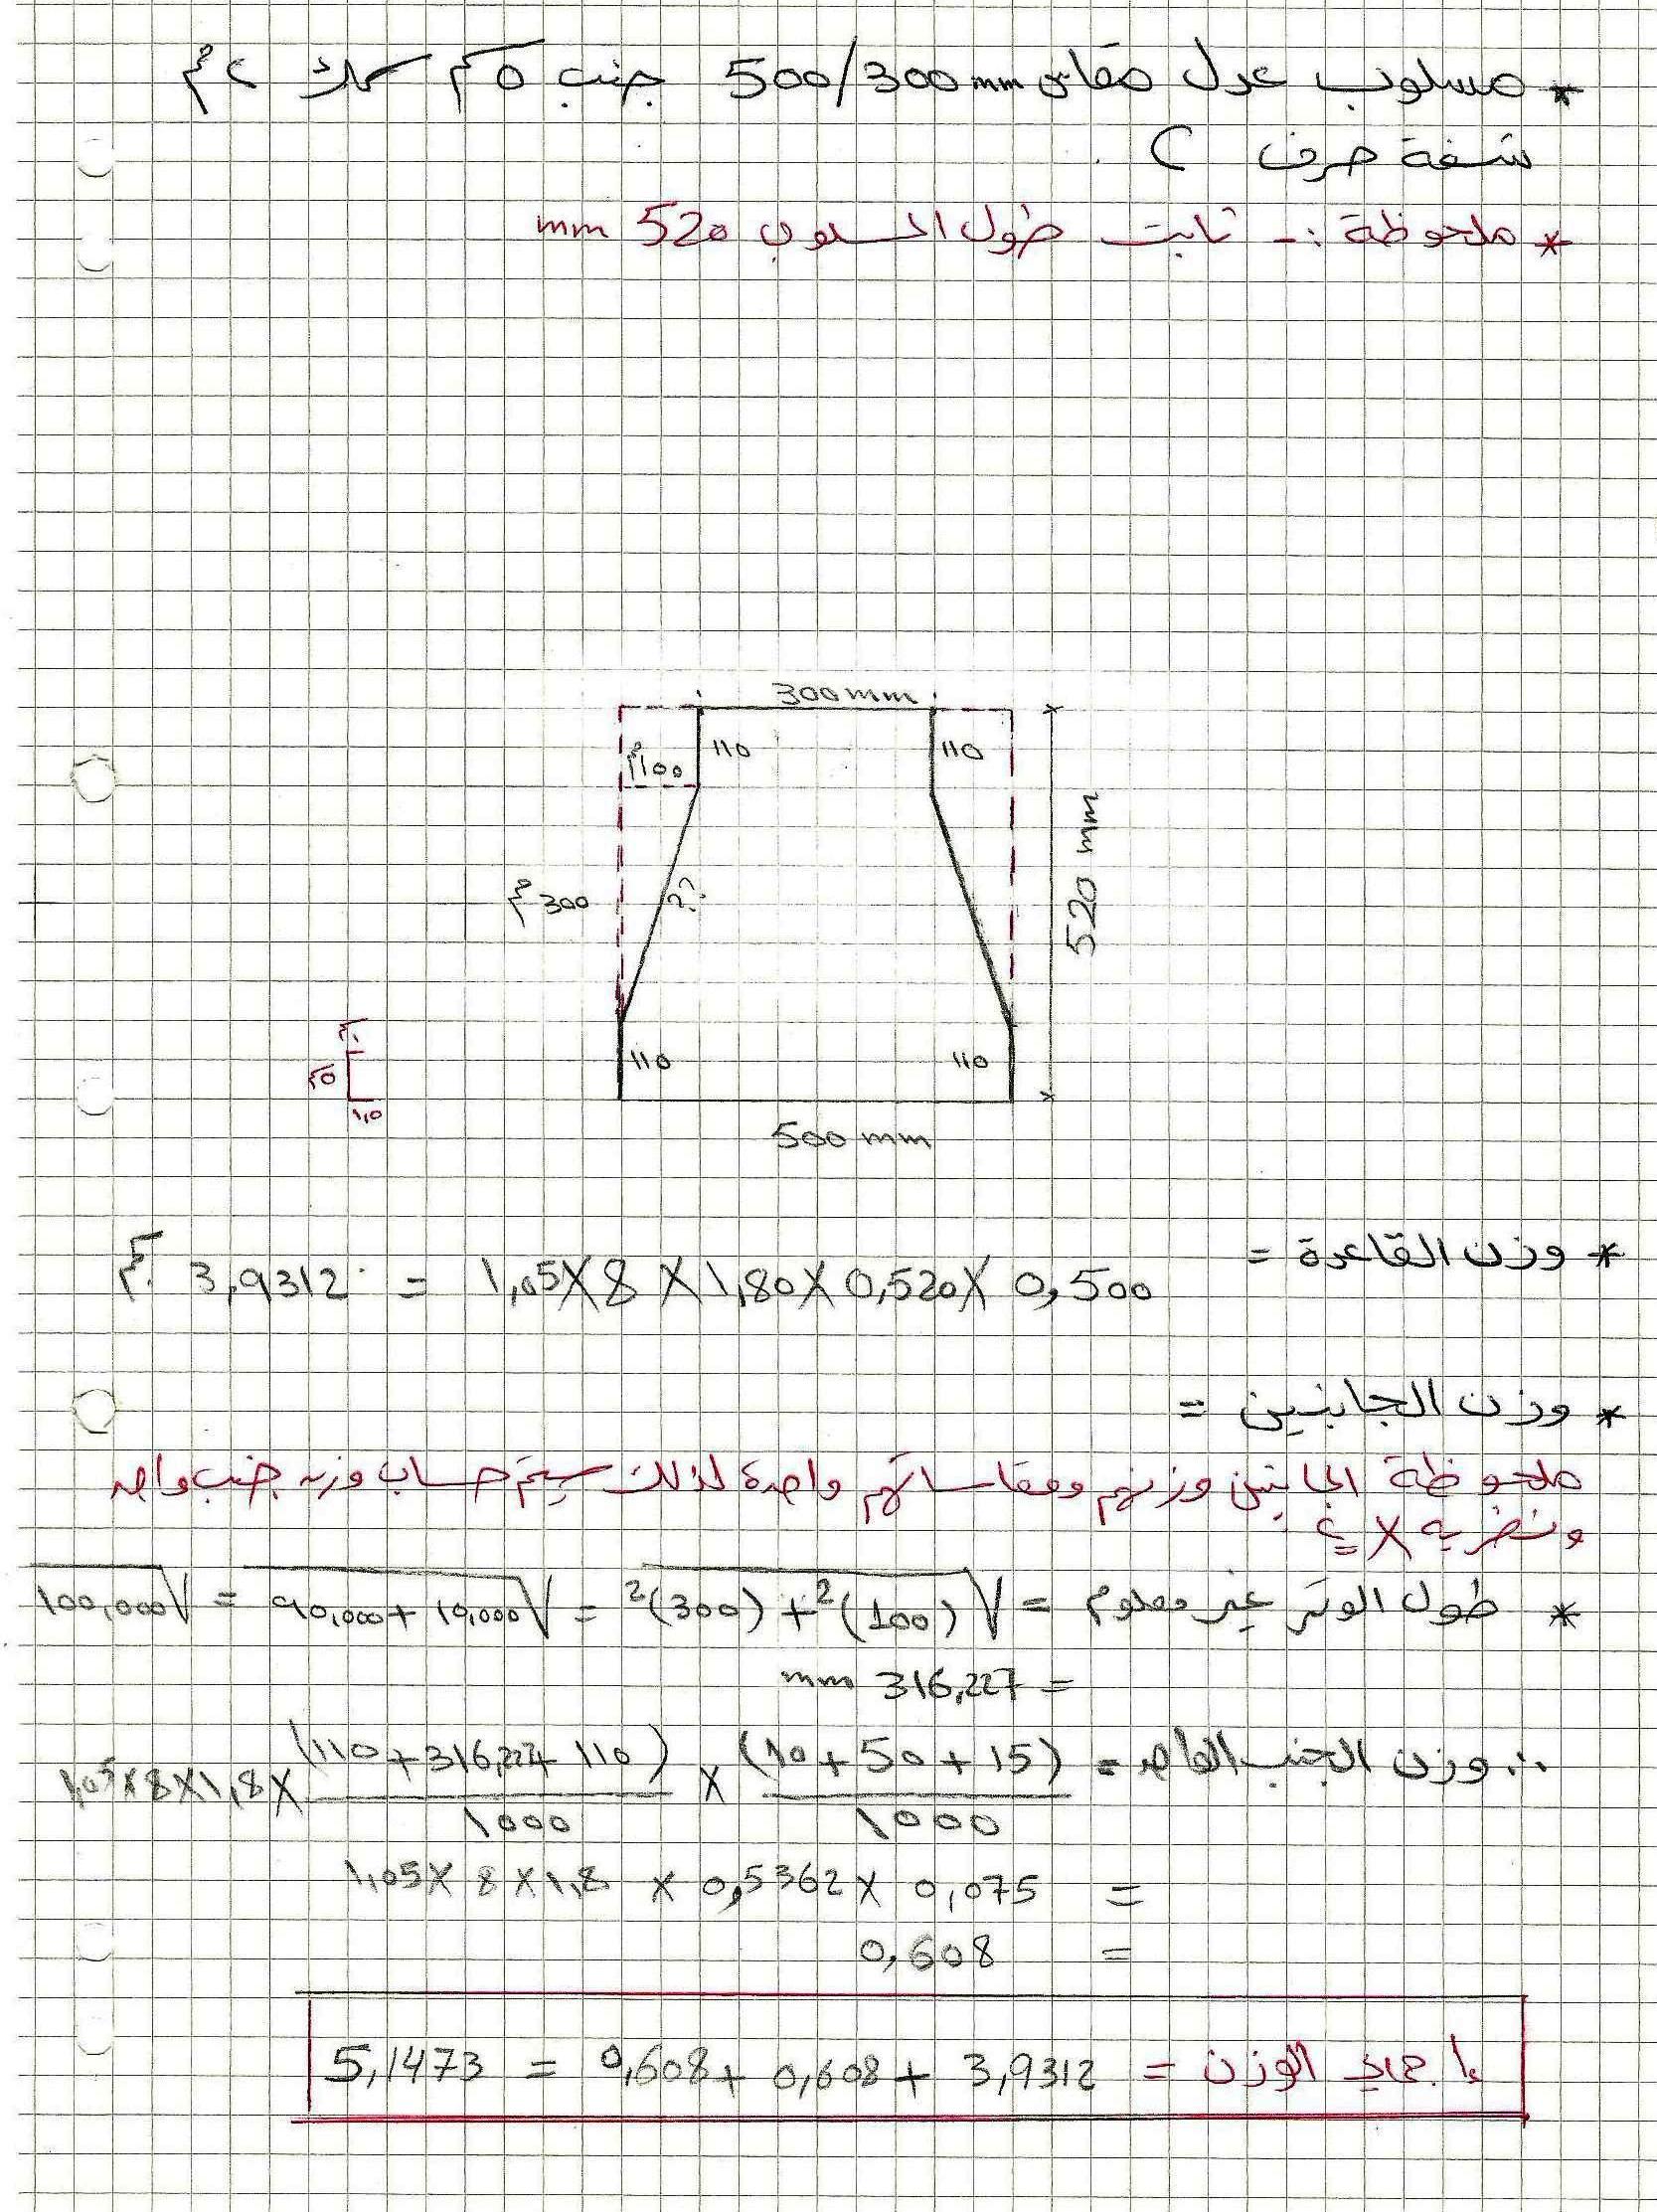 * مسلوب عدل مقاس 500/300 mm جنب ٥سم سمك ٢مم
شفة حرف C
* ملحوظة :- ثابت طول المسلوب 520 mm
300 mm
110
110
100مم
520 mm
300 مم
??
110
110
١سم
٥سم
١,٥
500 mm
* وزن القاعدة =
0,500 X 0,520 X 1,80 X 8 X 1,05 = 3,9312 كجم
* وزن الجانبين =
ملحوظة الجانبين وزنهم ومقاساتهم واحدة لذلك سيتم حساب وزن جنب واحد
ونضربه X ٢
* طول الوتر غير معلوم = √(100)² + (300)² = √10,000 + 90,000 = √100,000
= 316,227 mm
∴ وزن الجنب الواحد = (10 + 50 + 15)/1000 X (110 + 316,227 + 110)/1000 X 1,8 X 8 X 1,05
= 0,075 X 0,5362 X 1,8 X 8 X 1,05
= 0,608
إجمالي الوزن = 3,9312 + 0,608 + 0,608 = 5,1473